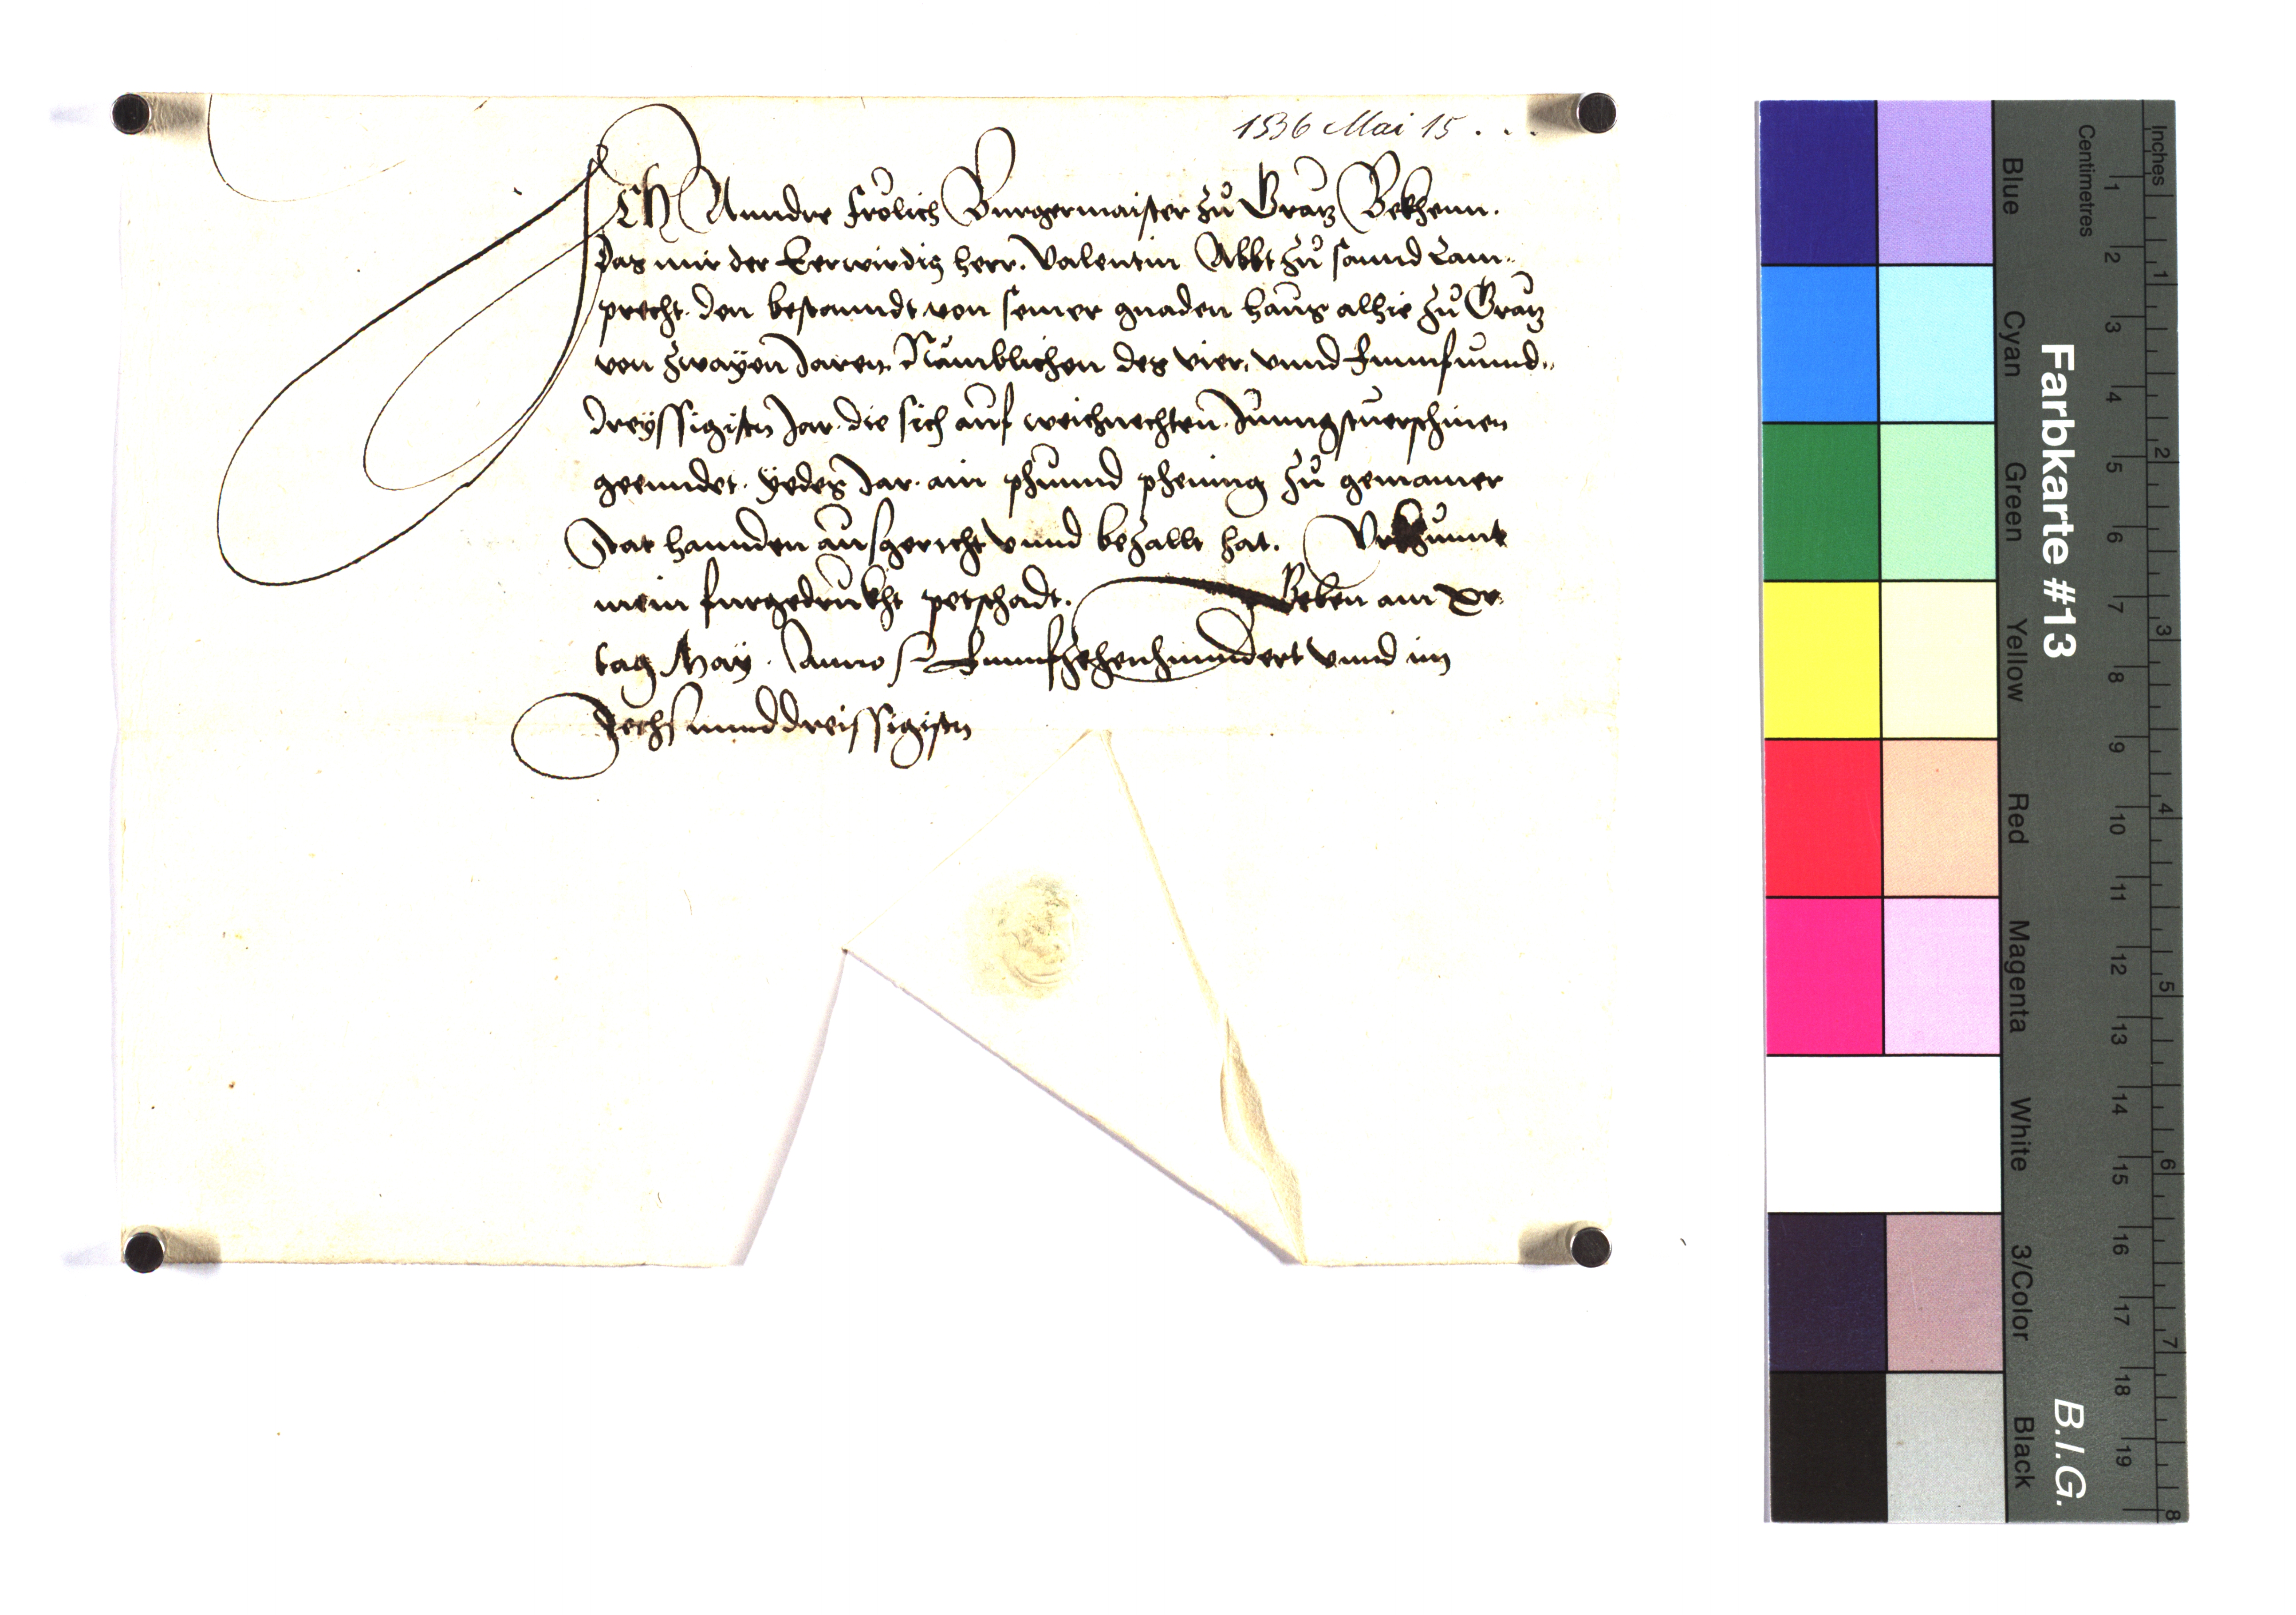 1536 Mai 15 . . .
ICH Anndre Frölich Burgermaister zů Grätz Bekhenn.
Das mir der Eerwirdig herr. Valentin Abbt zů sannd Lam-
precht. den bestanndt von seiner gnaden haus alhie zů Grätz
von zwayen Jaren. Nämblichen des vier. vnnd Funnfunnd-
dreyssigisten Jar. die sich auf weichnechten. Junngstuerschinen
geenndet. yedes Jar. ain phunnd phening zů gemainer
Stat hannden ausgericht vnnd bezallt hat. Vrkhunnt
mein furgedrukht petschadt. Geben am xv.
tag May. Anno Funnfzehenhunndert vnnd im
Sechsunnddreissigisten
Farbkarte #13
B.I.G.
Inches
Centimetres
1 2 3 4 5 6 7 8 9 10 11 12 13 14 15 16 17 18 19
1 2 3 4 5 6 7 8
Blue
Cyan
Green
Yellow
Red
Magenta
White
3/Color
Black